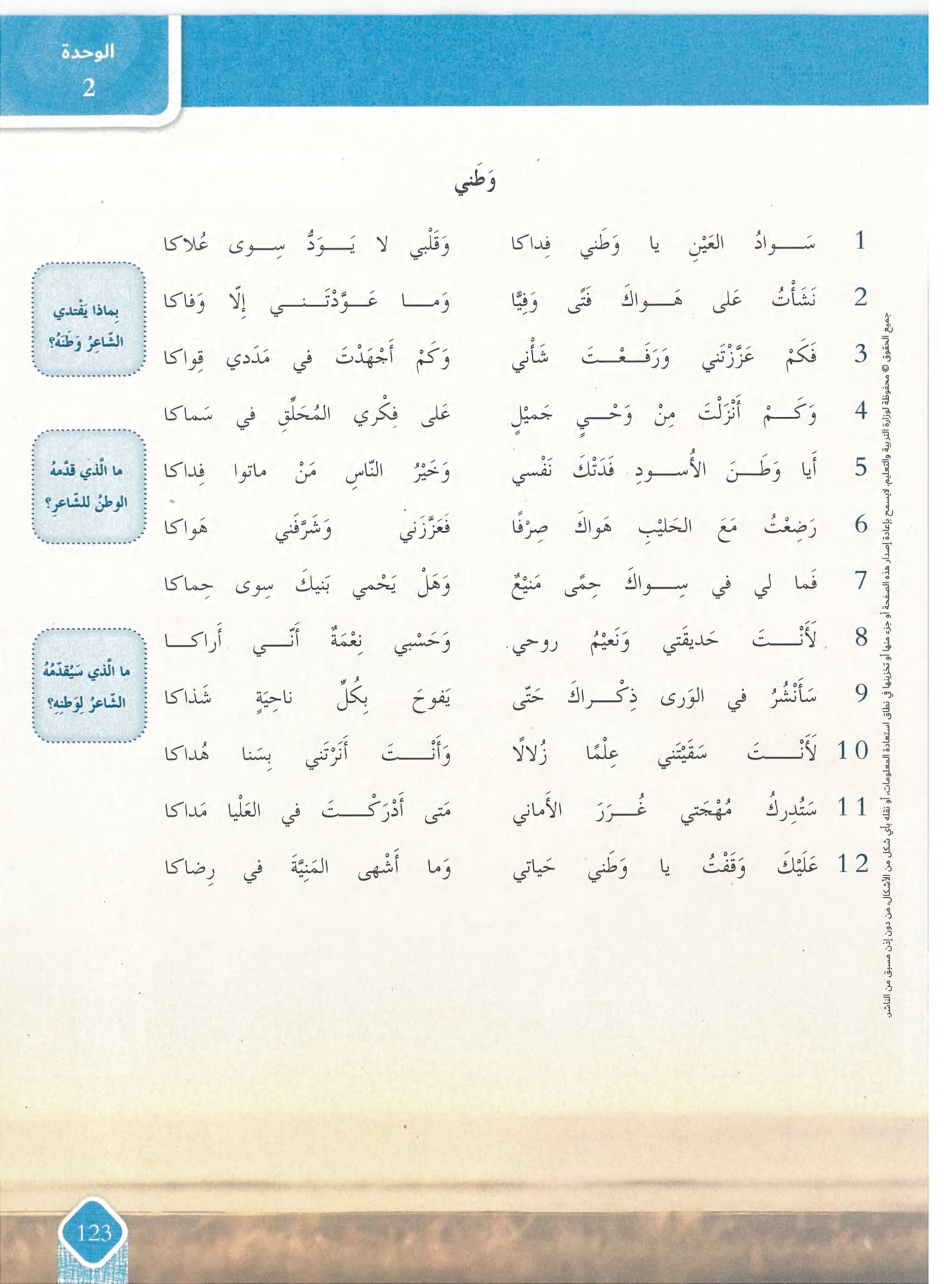 الوحدة
2
وَطَني
1 سَــوادُ العَيْنِ يا وَطَني فِداكا وَقَلْبي لا يَــوَدُّ سِــوى عُلاكا
2 نَشَأْتُ عَلى هَــواكَ فَتًى وَفِيًّا وَمــا عَــوَّدْتَــنــي إِلّا وَفاكا
بِماذا يَفْتدي
الشّاعِرُ وَطَنَهُ؟
3 فَكَمْ عَزَّزْتَني وَرَفَــعْــتَ شَأْني وَكَمْ أَجْهَدْتَ في مَدَدي قِواكا
4 وَكَــمْ أَنْزَلْتَ مِنْ وَحْــيٍ جَميْلٍ عَلى فِكْري المُحَلِّقِ في سَماكا
5 أَيا وَطَــنَ الأُســودِ فَدَتْكَ نَفْسي وَخَيْرُ النّاسِ مَنْ ماتوا فِداكا
ما الَّذي قدَّمهُ
الوطنُ للشّاعرِ؟
6 رَضِعْتُ مَعَ الحَليْبِ هَواكَ صِرْفًا فَعَزَّزَني وَشَرَّفَني هَواكا
7 فَما لي في سِــواكَ حِمًى مَنيْعٌ وَهَلْ يَحْمي بَنيكَ سِوى حِماكا
8 لَأَنْــتَ حَديقَتي وَنَعيْمُ روحي وَحَسْبي نِعْمَةٌ أَنّــي أَراكــا
ما الَّذي سَيُقدّمُهُ
الشّاعرُ لِوَطنِهِ؟
9 سَأَنْشُرُ في الوَرى ذِكْــراكَ حَتّى يَفوحَ بِكُلِّ ناحِيَةٍ شَذاكا
10 لَأَنْــتَ سَقَيْتَني عِلْمًا زُلالًا وَأَنْــتَ أَنَرْتَني بِسَنا هُداكا
11 سَتُدرِكُ مُهْجَتي غُــرَرَ الأَماني مَتى أَدْرَكْــتَ في العَلْيا مَداكا
12 عَلَيْكَ وَقَفْتُ يا وَطَني حَياتي وَما أَشْهى المَنِيَّةَ في رِضاكا
جميع الحقوق © محفوظة لوزارة التربية والتعليم. لايسمح بإعادة إصدار هذه الصفحة أو جزء منها أو تخزينها في نطاق استعادة المعلومات، أو نقله بأي شكل من الأشكال، من دون إذن مسبق من الناشر.
123